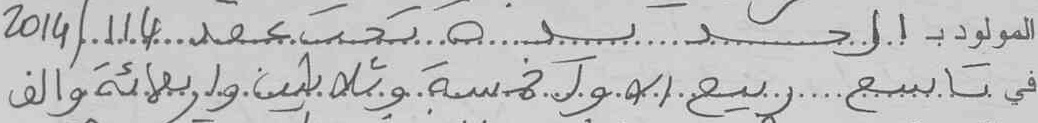 المولود بـ الجديدة تحت عقد 114/2014
في تاسع ربيع الاول خمسة وثلاثين واربعمائة والف